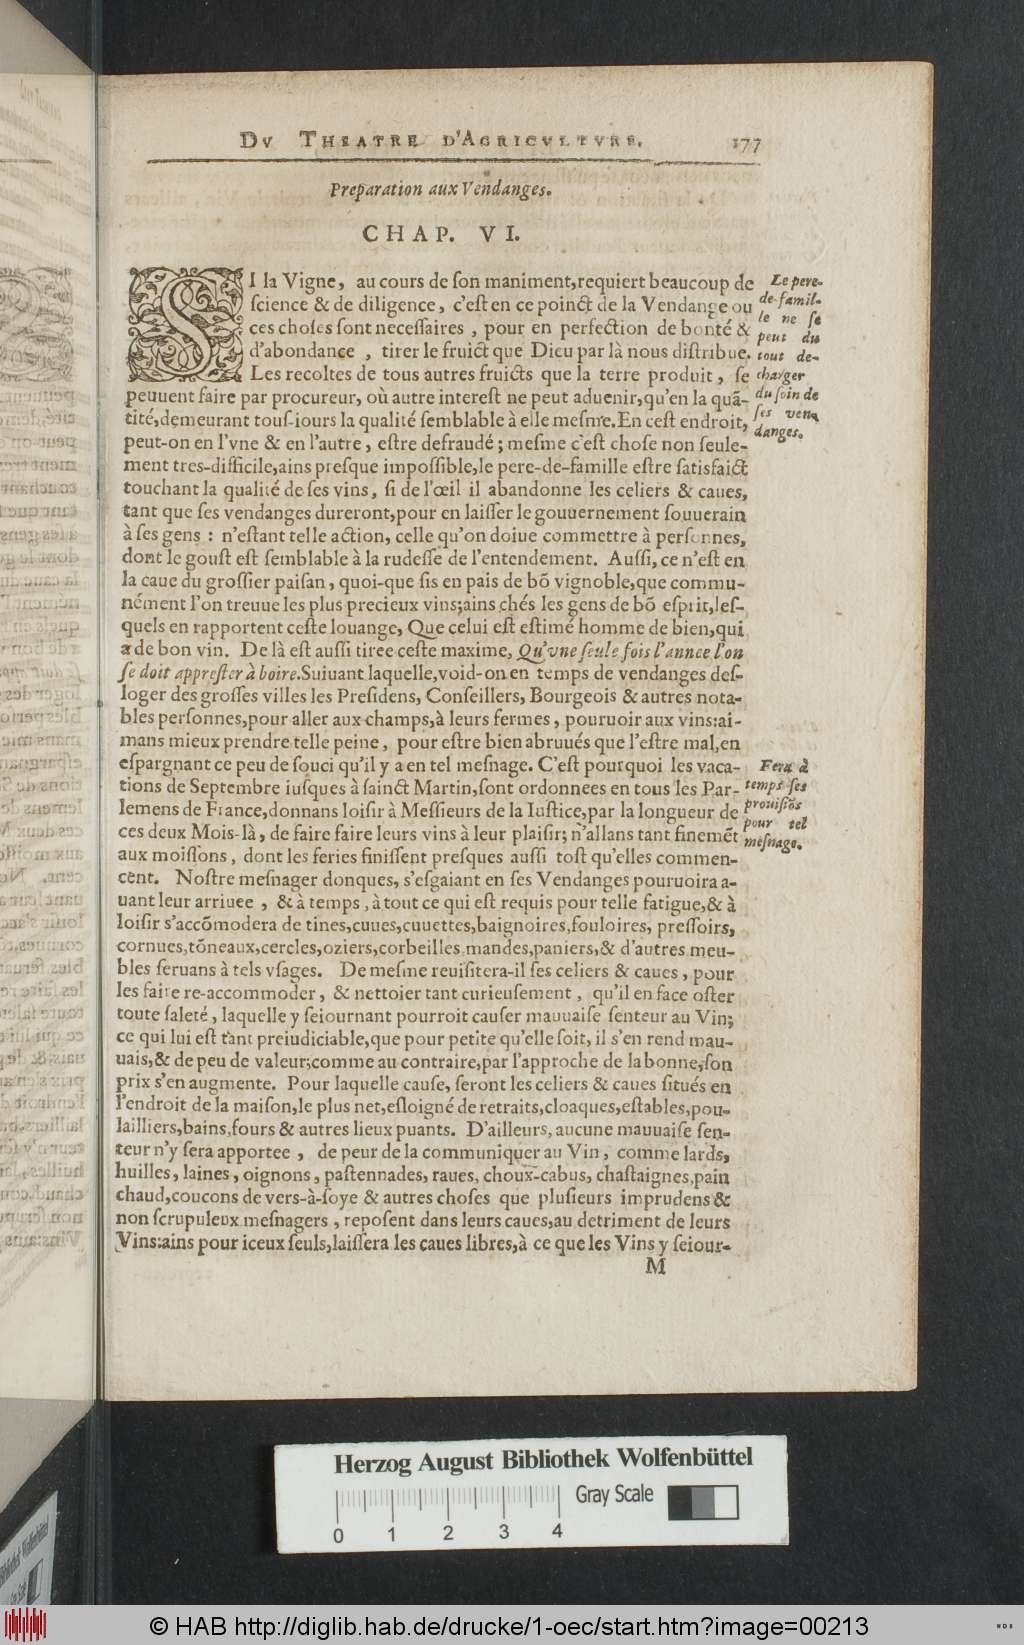 DV THEATRE D'AGRICVLTVRE. 177
Preparation aux Vendanges.
CHAP. VI.
SI la Vigne, au cours de ſon maniment,requiert beaucoup de
ſcience & de diligence, c'eſt en ce poinct de la Vendange ou
ces choſes ſont neceſſaires, pour en perfection de bonté &
d'abondance, tirer le fruict que Dieu par là nous diſtribue.
Les recoltes de tous autres fruicts que la terre produit, ſe
peuuent faire par procureur, où autre intereſt ne peut aduenir,qu'en la quā-
tité,demeurant touſ-iours la qualité ſemblable à elle meſme.En ceſt endroit,
peut-on en l'vne & en l'autre, eſtre defraudé; meſme c'eſt choſe non ſeule-
ment tres-difficile,ains preſque impoſſible,le pere-de-famille eſtre ſatisfaict
touchant la qualité de ſes vins, ſi de l'œil il abandonne les celiers & caues,
tant que ſes vendanges dureront,pour en laiſſer le gouuernement ſouuerain
à ſes gens : n'eſtant telle action, celle qu'on doiue commettre à perſonnes,
dont le gouſt eſt ſemblable à la rudeſſe de l'entendement. Auſſi, ce n'eſt en
la caue du groſſier païſan, quoi-que ſis en pais de bō vignoble,que commu-
nément l'on treuue les plus precieux vins;ains chés les gens de bō eſprit,leſ-
quels en rapportent ceſte louange, Que celui eſt eſtimé homme de bien,qui
a de bon vin. De là eſt auſſi tiree ceſte maxime, Qu'vne ſeule fois l'annee l'on
ſe doit appreſter à boire.Suiuant laquelle,void-on en temps de vendanges deſ-
loger des groſſes villes les Preſidens, Conſeillers, Bourgeois & autres nota-
bles perſonnes,pour aller aux champs,à leurs fermes, pouruoir aux vins:ai-
mans mieux prendre telle peine, pour eſtre bien abruués que l'eſtre mal,en
eſpargnant ce peu de ſouci qu'il y a en tel meſnage. C'eſt pourquoi les vaca-
tions de Septembre iuſques à ſainct Martin,ſont ordonnees en tous les Par-
lemens de France,donnans loiſir à Meſſieurs de la Iuſtice,par la longueur de
ces deux Mois-là, de faire faire leurs vins à leur plaiſir; n'allans tant finemēt
aux moiſſons, dont les feries finiſſent preſques auſſi toſt qu'elles commen-
cēnt. Noſtre meſnager donques, s'eſgaiant en ſes Vendanges pouruoira a-
uant leur arriuee, & à temps, à tout ce qui eſt requis pour telle fatigue,& à
loiſir s'accōmodera de tines,cuues,cuuettes,baignoires,fouloires, preſſoirs,
cornues,tōneaux,cercles,oziers,corbeilles,mandes,paniers,& d'autres meu-
bles ſeruans à tels vſages. De meſme reuiſitera-il ſes celiers & caues, pour
les faire re-accommoder, & nettoier tant curieuſement, qu'il en face oſter
toute ſaleté, laquelle y ſeiournant pourroit cauſer mauuaiſe ſenteur au Vin;
ce qui lui eſt tant preiudiciable,que pour petite qu'elle ſoit, il s'en rend mau-
uais,& de peu de valeur;comme au contraire,par l'approche de la bonne,ſon
prix s'en augmente. Pour laquelle cauſe, ſeront les celiers & caues ſitués en
l'endroit de la maiſon,le plus net,eſloigné de retraits,cloaques,eſtables,pou-
lailliers,bains,fours & autres lieux puants. D'ailleurs, aucune mauuaiſe ſen-
teur n'y ſera apportee, de peur de la communiquer au Vin, comme lards,
huilles, laines, oignons, paſtennades, raues, choux-cabus, chaſtaignes,pain
chaud,coucons de vers-à-ſoye & autres choſes que pluſieurs imprudens &
non ſcrupuleux meſnagers, repoſent dans leurs caues,au detriment de leurs
Vins:ains pour iceux ſeuls,laiſſera les caues libres,à ce que les Vins y ſeiour-
M
Le pere-
de-famil-
le ne ſe
peut du
tout de-
charger
du ſoin de
ſes ven-
danges.
Fera à
temps ſes
prouiſiōs
pour tel
meſnage.
Herzog August Bibliothek Wolfenbüttel
Gray Scale
0 1 2 3 4
© HAB http://diglib.hab.de/drucke/1-oec/start.htm?image=00213